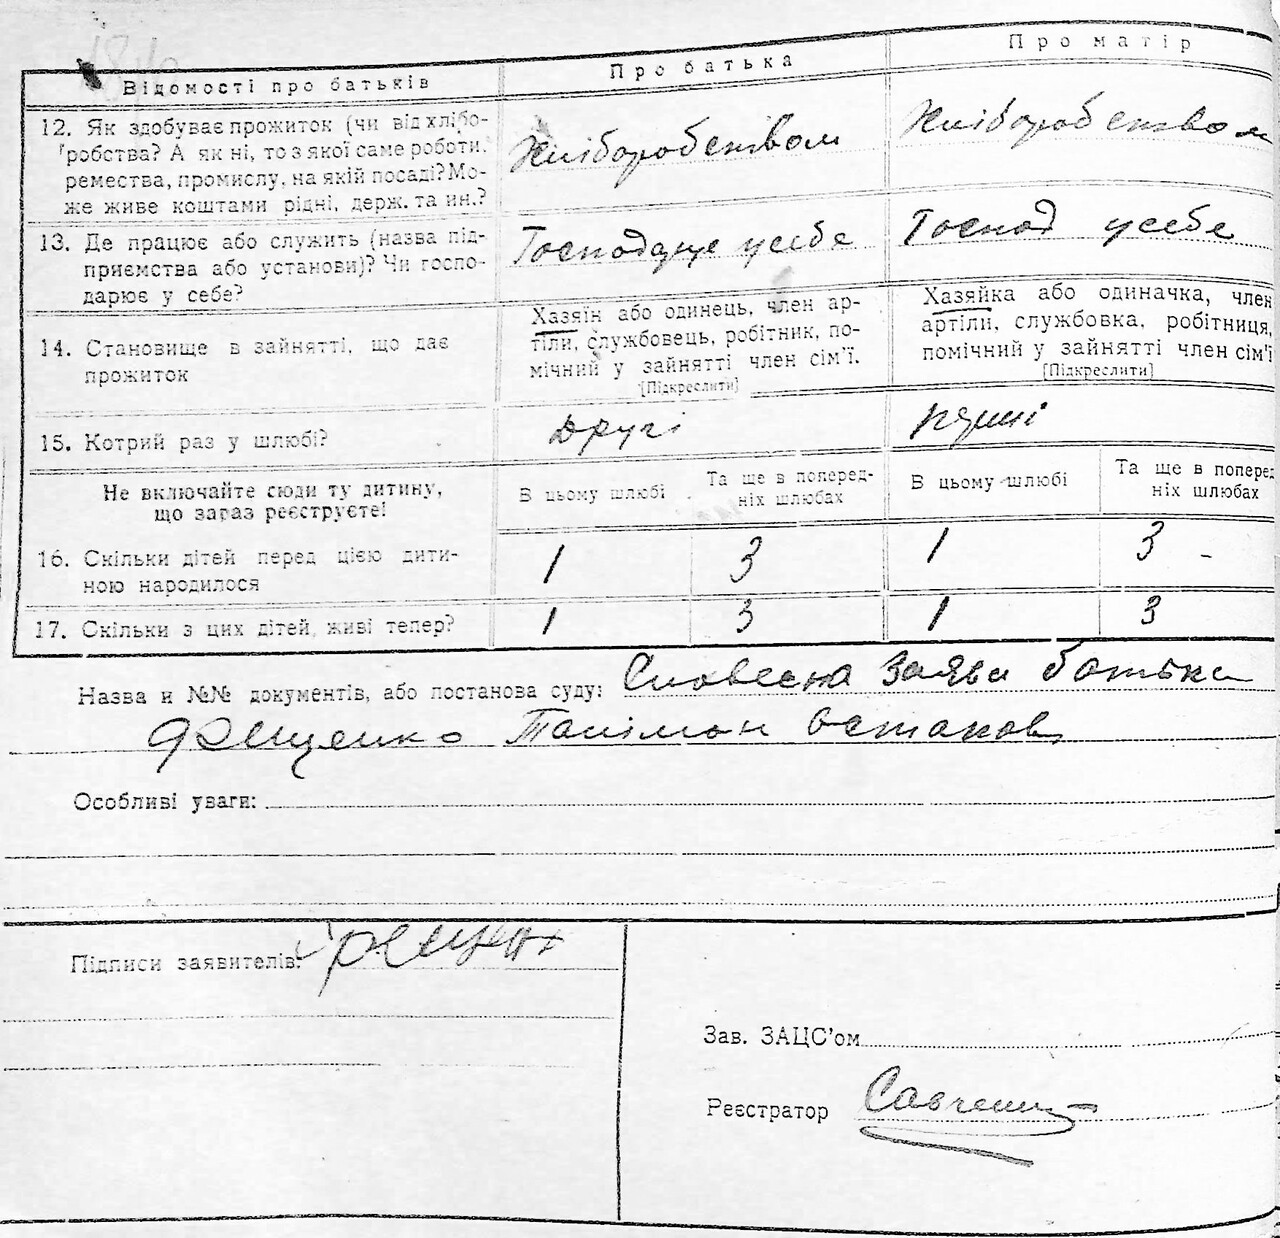 Відомості про батьків
Про батька
Про матір
12. Як здобуває прожиток (чи від хлібо-
робства? А як ні, то з якої саме роботи,
ремества, промислу, на якій посаді? Мо-
же живе коштами рідні, держ. та ин.?
Хліборобством
Хліборобством
13. Де працює або служить (назва під-
приємства або установи)? Чи госпо-
дарює у себе?
Господарює у себе
Господ у себе
14. Становище в зайнятті, що дає
прожиток
Хазяїн або одинець, член ар-
тіли, службовець, робітник, по-
мічний у зайнятті член сім'ї.
[Підкреслити]
Хазяйка або одиначка, член
артіли, службовка, робітниця,
помічний у зайнятті член сім'ї
[Підкреслити]
15. Котрий раз у шлюбі?
Другі
Не включайте сюди ту дитину,
що зараз реєструєте!
В цьому шлюбі
Та ще в поперед-
ніх шлюбах
В цьому шлюбі
Та ще в поперед
ніх шлюбах
16. Скільки дітей перед цією дити-
ною народилося
1 3 1 3 -
17. Скільки з цих дітей живі тепер?
1 3 1 3
Назва и №№ документів, або постанова суду: Словесна заява батька
Остапов
Особливі уваги:
Підписи заявителів:
Зав. ЗАЦС'ом
Реєстратор Савченко